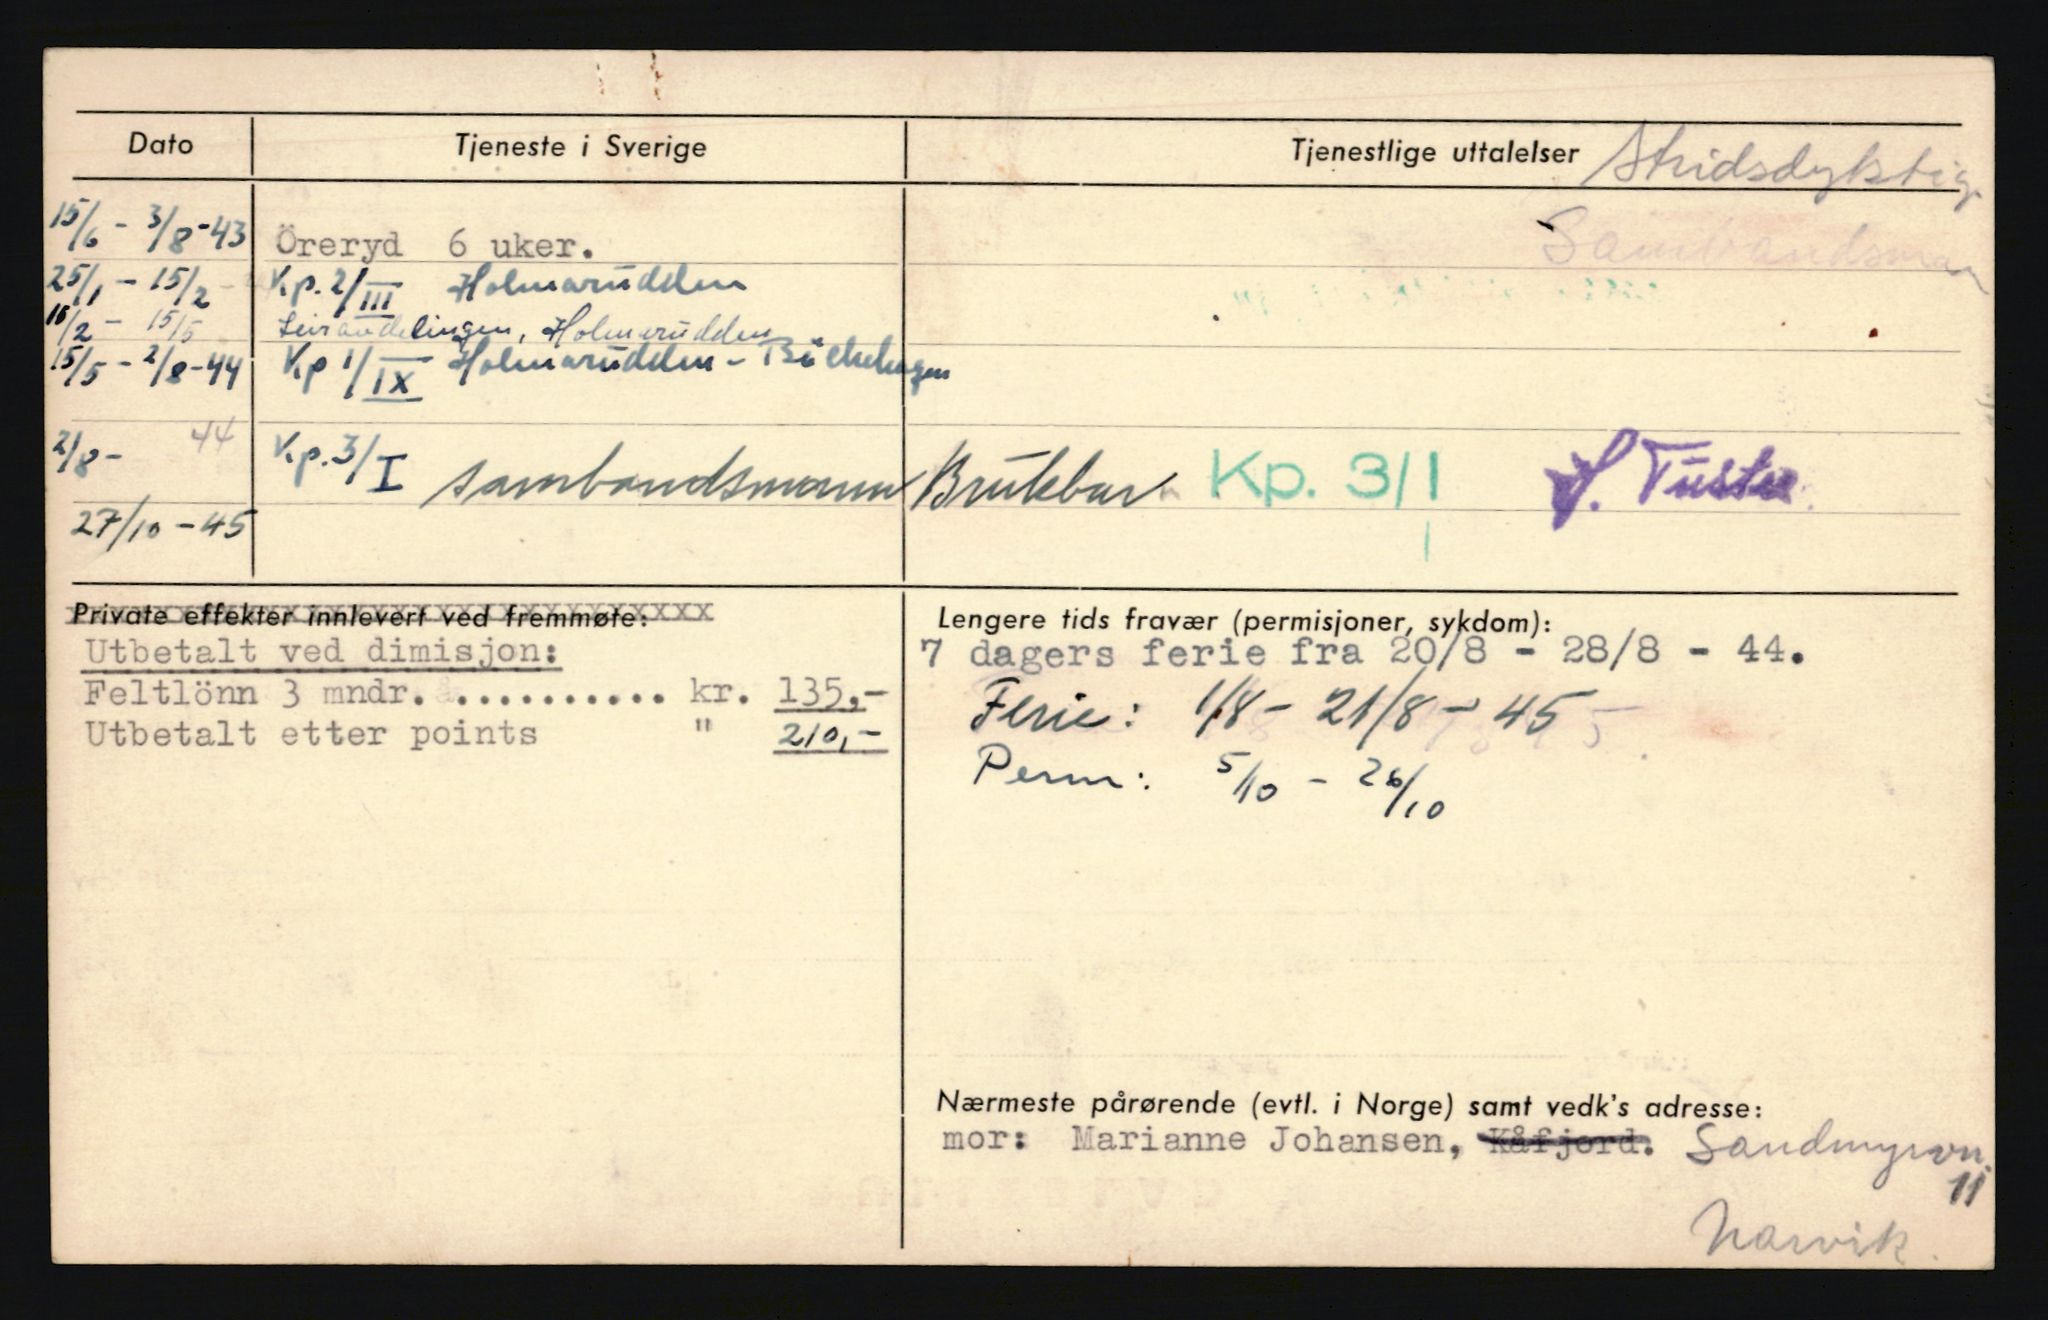 Dato Tjeneste i Sverige Tjenestlige uttalelser Stridsdyktig
Sambandsman
15/6 - 3/8 - 43 Öreryd 6 uker.
25/1 - 15/2 Kp. 2/III Holmarudden
15/2 - 15/5 Leiravdelingen, Holmarudden
15/5 - 2/8 - 44 Kp 1/IX Holmarudden -
2/8 - 44 Kp. 3/I sambandsmann Brukbar Kp. 3/1
27/10 - 45
Private effekter innlevert ved fremmøte: Lengere tids fravær (permisjoner, sykdom):
Utbetalt ved dimisjon: 7 dagers ferie fra 20/8 - 28/8 - 44.
Feltlönn 3 mndr. .......... kr. 135,- Ferie: 1/8 - 21/8 - 45
Utbetalt etter points " 210,-
Perm: 5/10 - 26/10
Nærmeste pårørende (evtl. i Norge) samt vedk's adresse:
mor: Marianne Johansen, Kåfjord. Sandmyrvn.
11
Narvik.